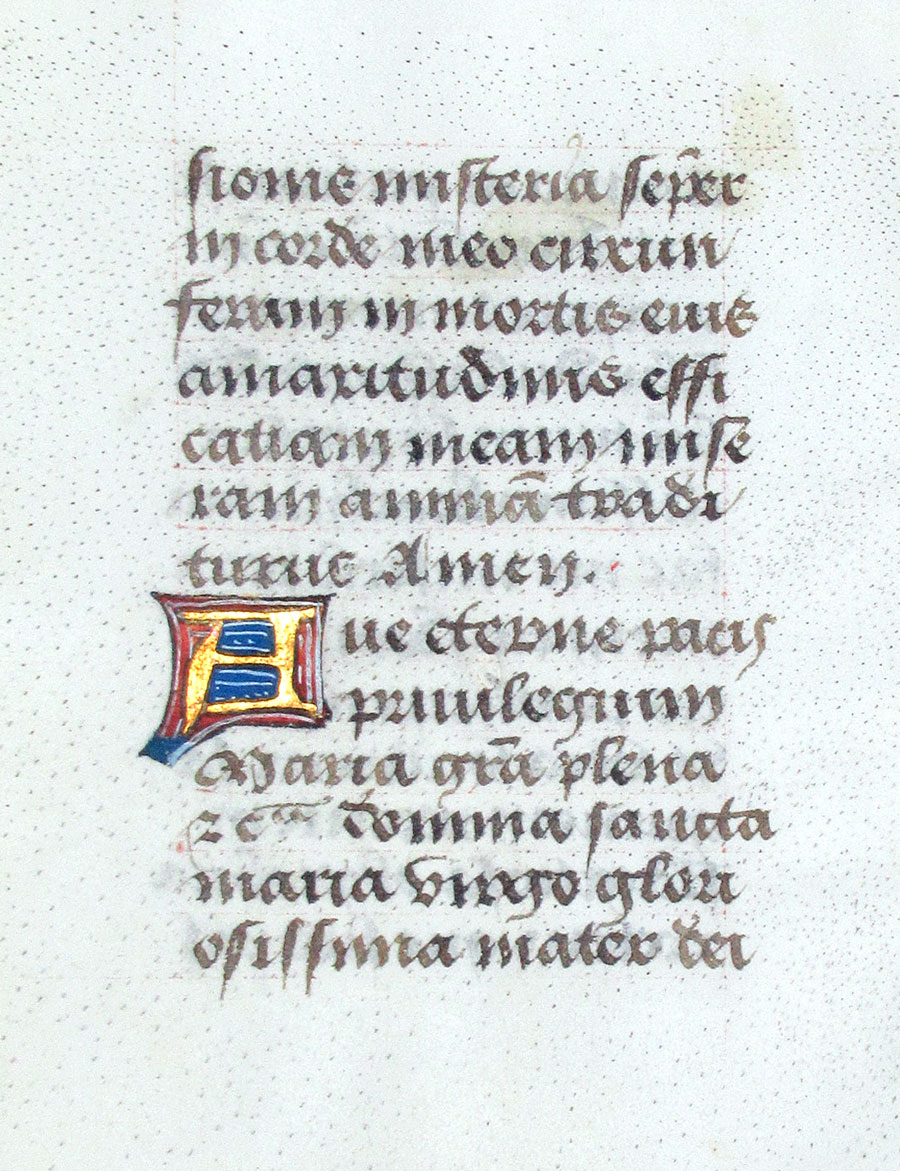 sionis misteria sep̄er
in corde meo circun
feram in mortis eius
amaritudinis effi
catiam meam mise
ram animā tradi
turus Amen.
Aue eterne pacis
priuilegium
Maria gr̄a plena
⁊ cᵃ domina sancta
maria virgo glori
osissima mater dei